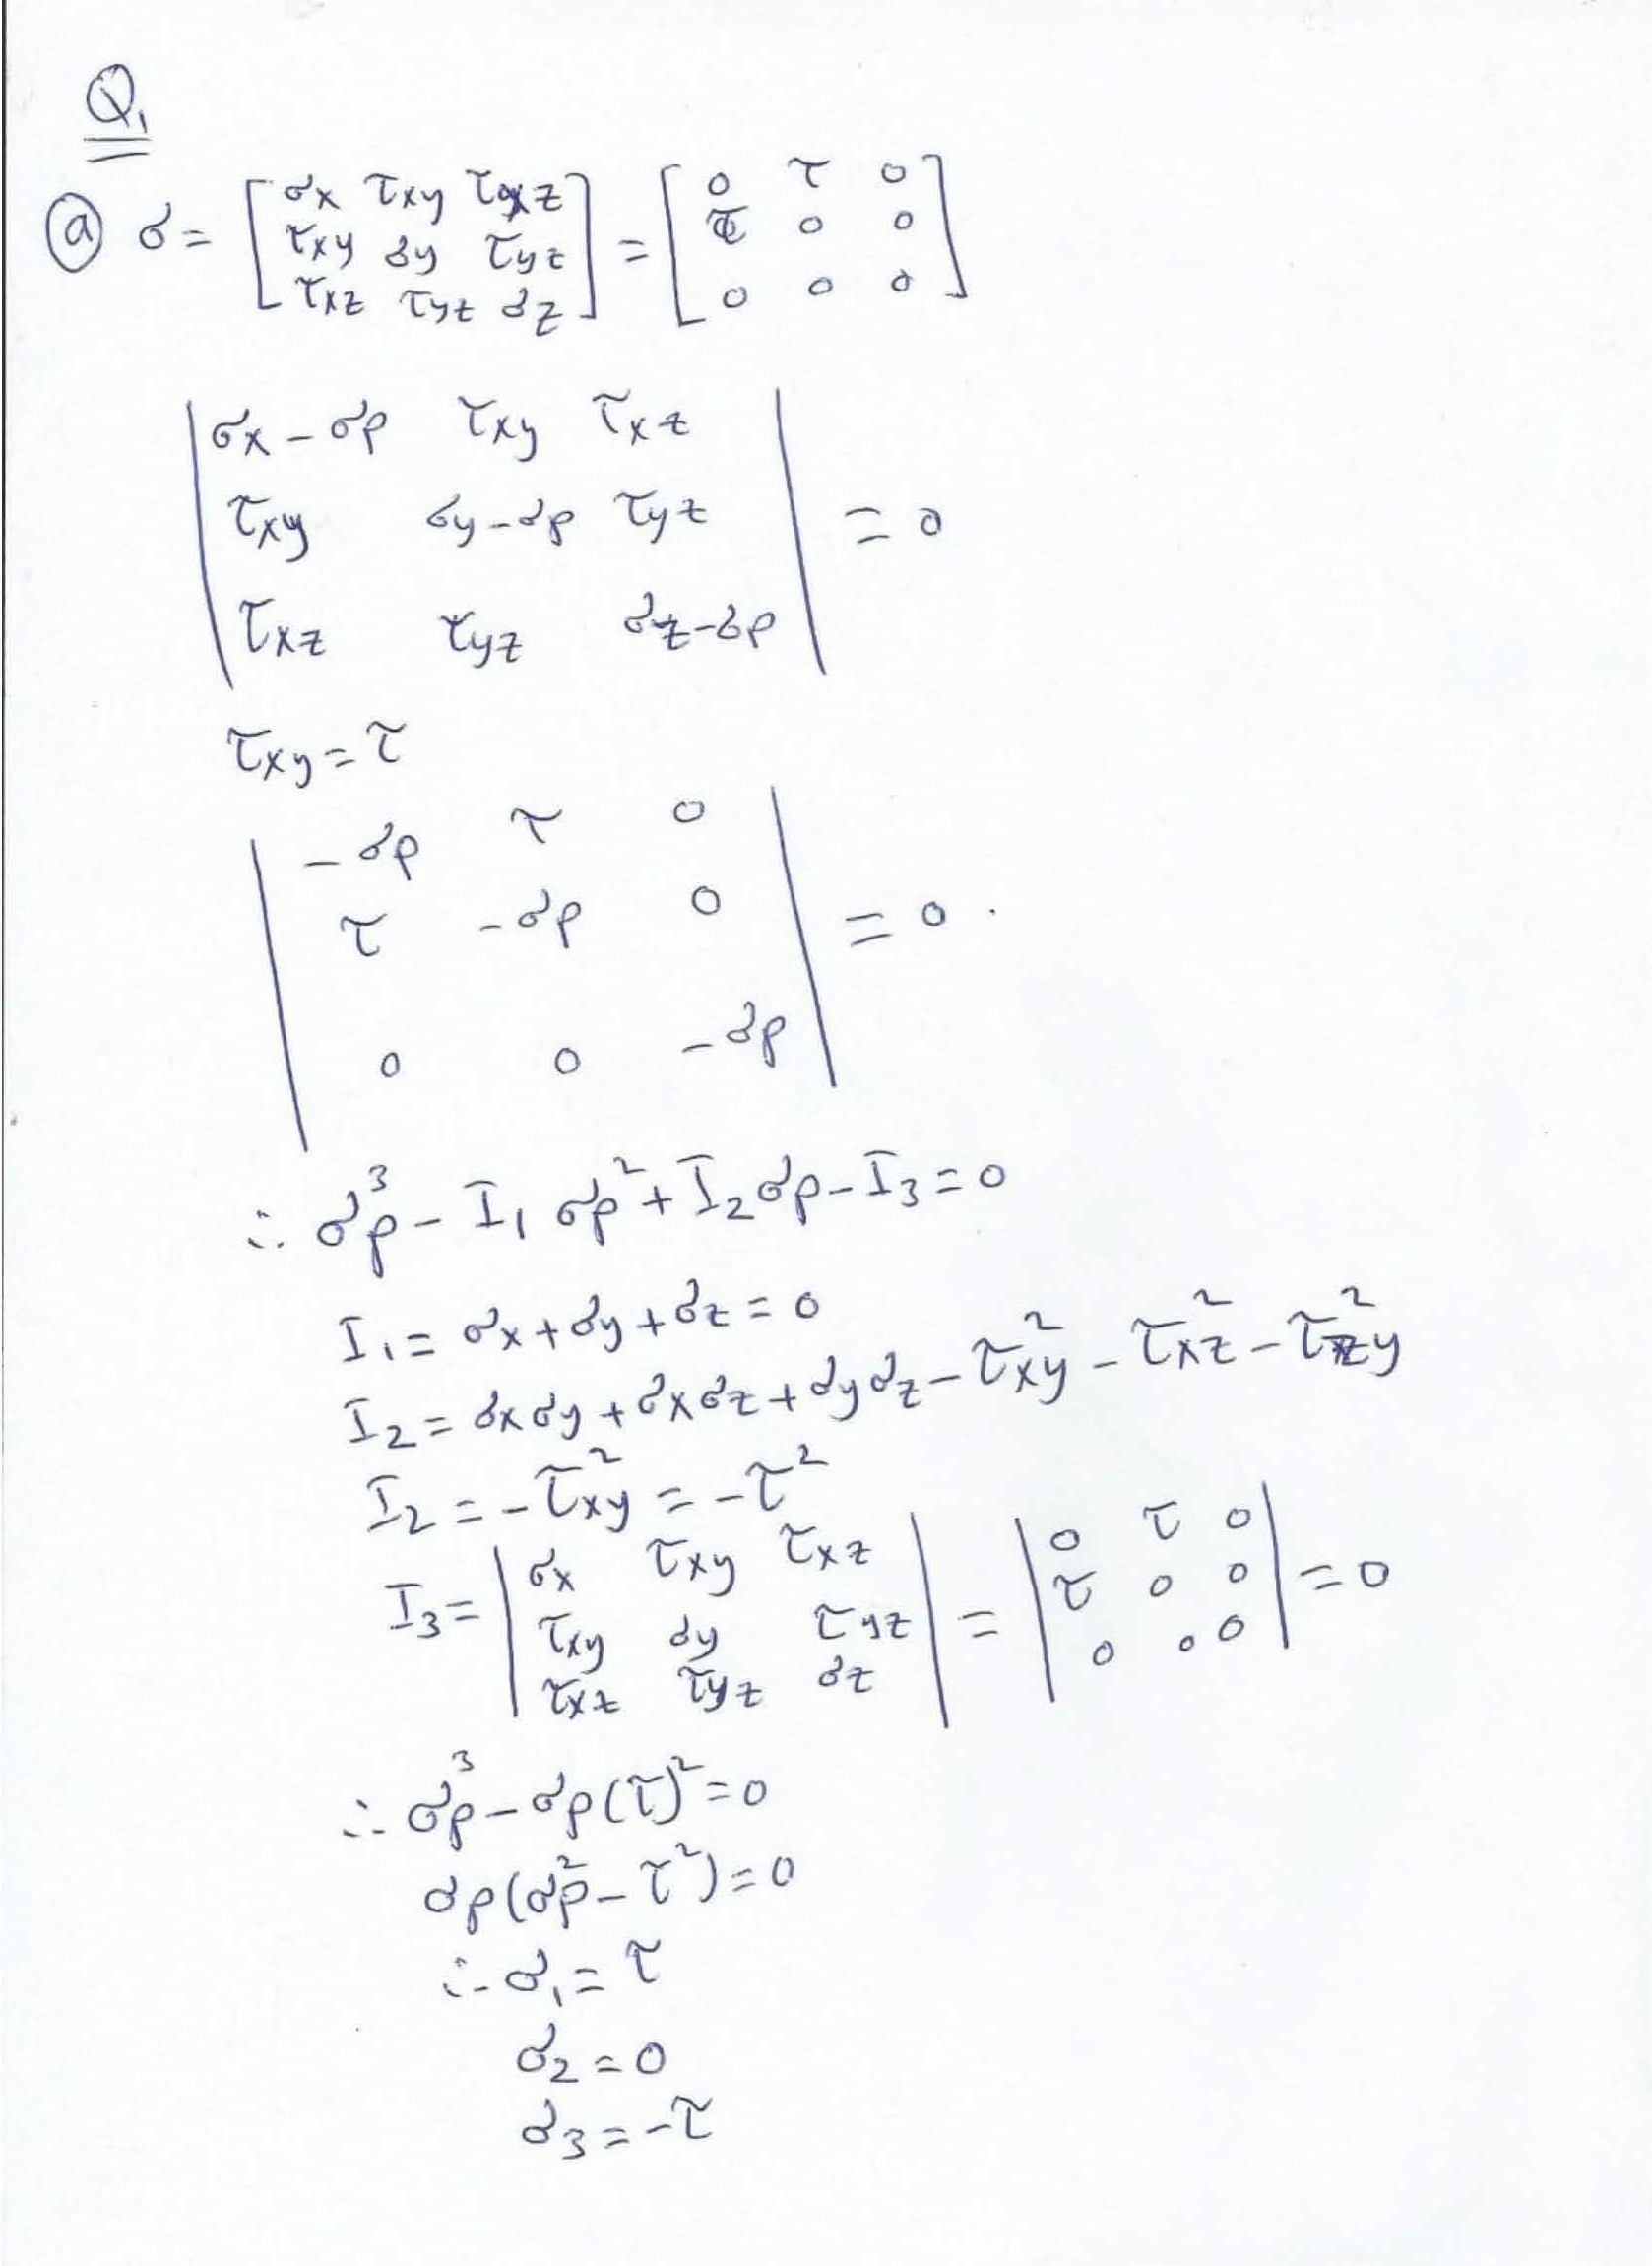 Q1
(a) σ = [σx τxy τxz; τxy σy τyz; τxz τyz σz] = [0 τ 0; τ 0 0; 0 0 0]
|σx - σp τxy τxz|
|τxy σy - σp τyz| = 0
|τxz τyz σz - σp|
τxy = τ
|-σp τ 0|
|τ -σp 0| = 0
|0 0 -σp|
∴ σp³ - I1 σp² + I2 σp - I3 = 0
I1 = σx + σy + σz = 0
I2 = σxσy + σxσz + σyσz - τxy² - τxz² - τzy²
I2 = -τxy² = -τ²
I3 = |σx τxy τxz; τxy σy τyz; τxz τyz σz| = |0 τ 0; τ 0 0; 0 0 0| = 0
∴ σp³ - σp(τ)² = 0
σp(σp² - τ²) = 0
∴ σ1 = τ
σ2 = 0
σ3 = -τ